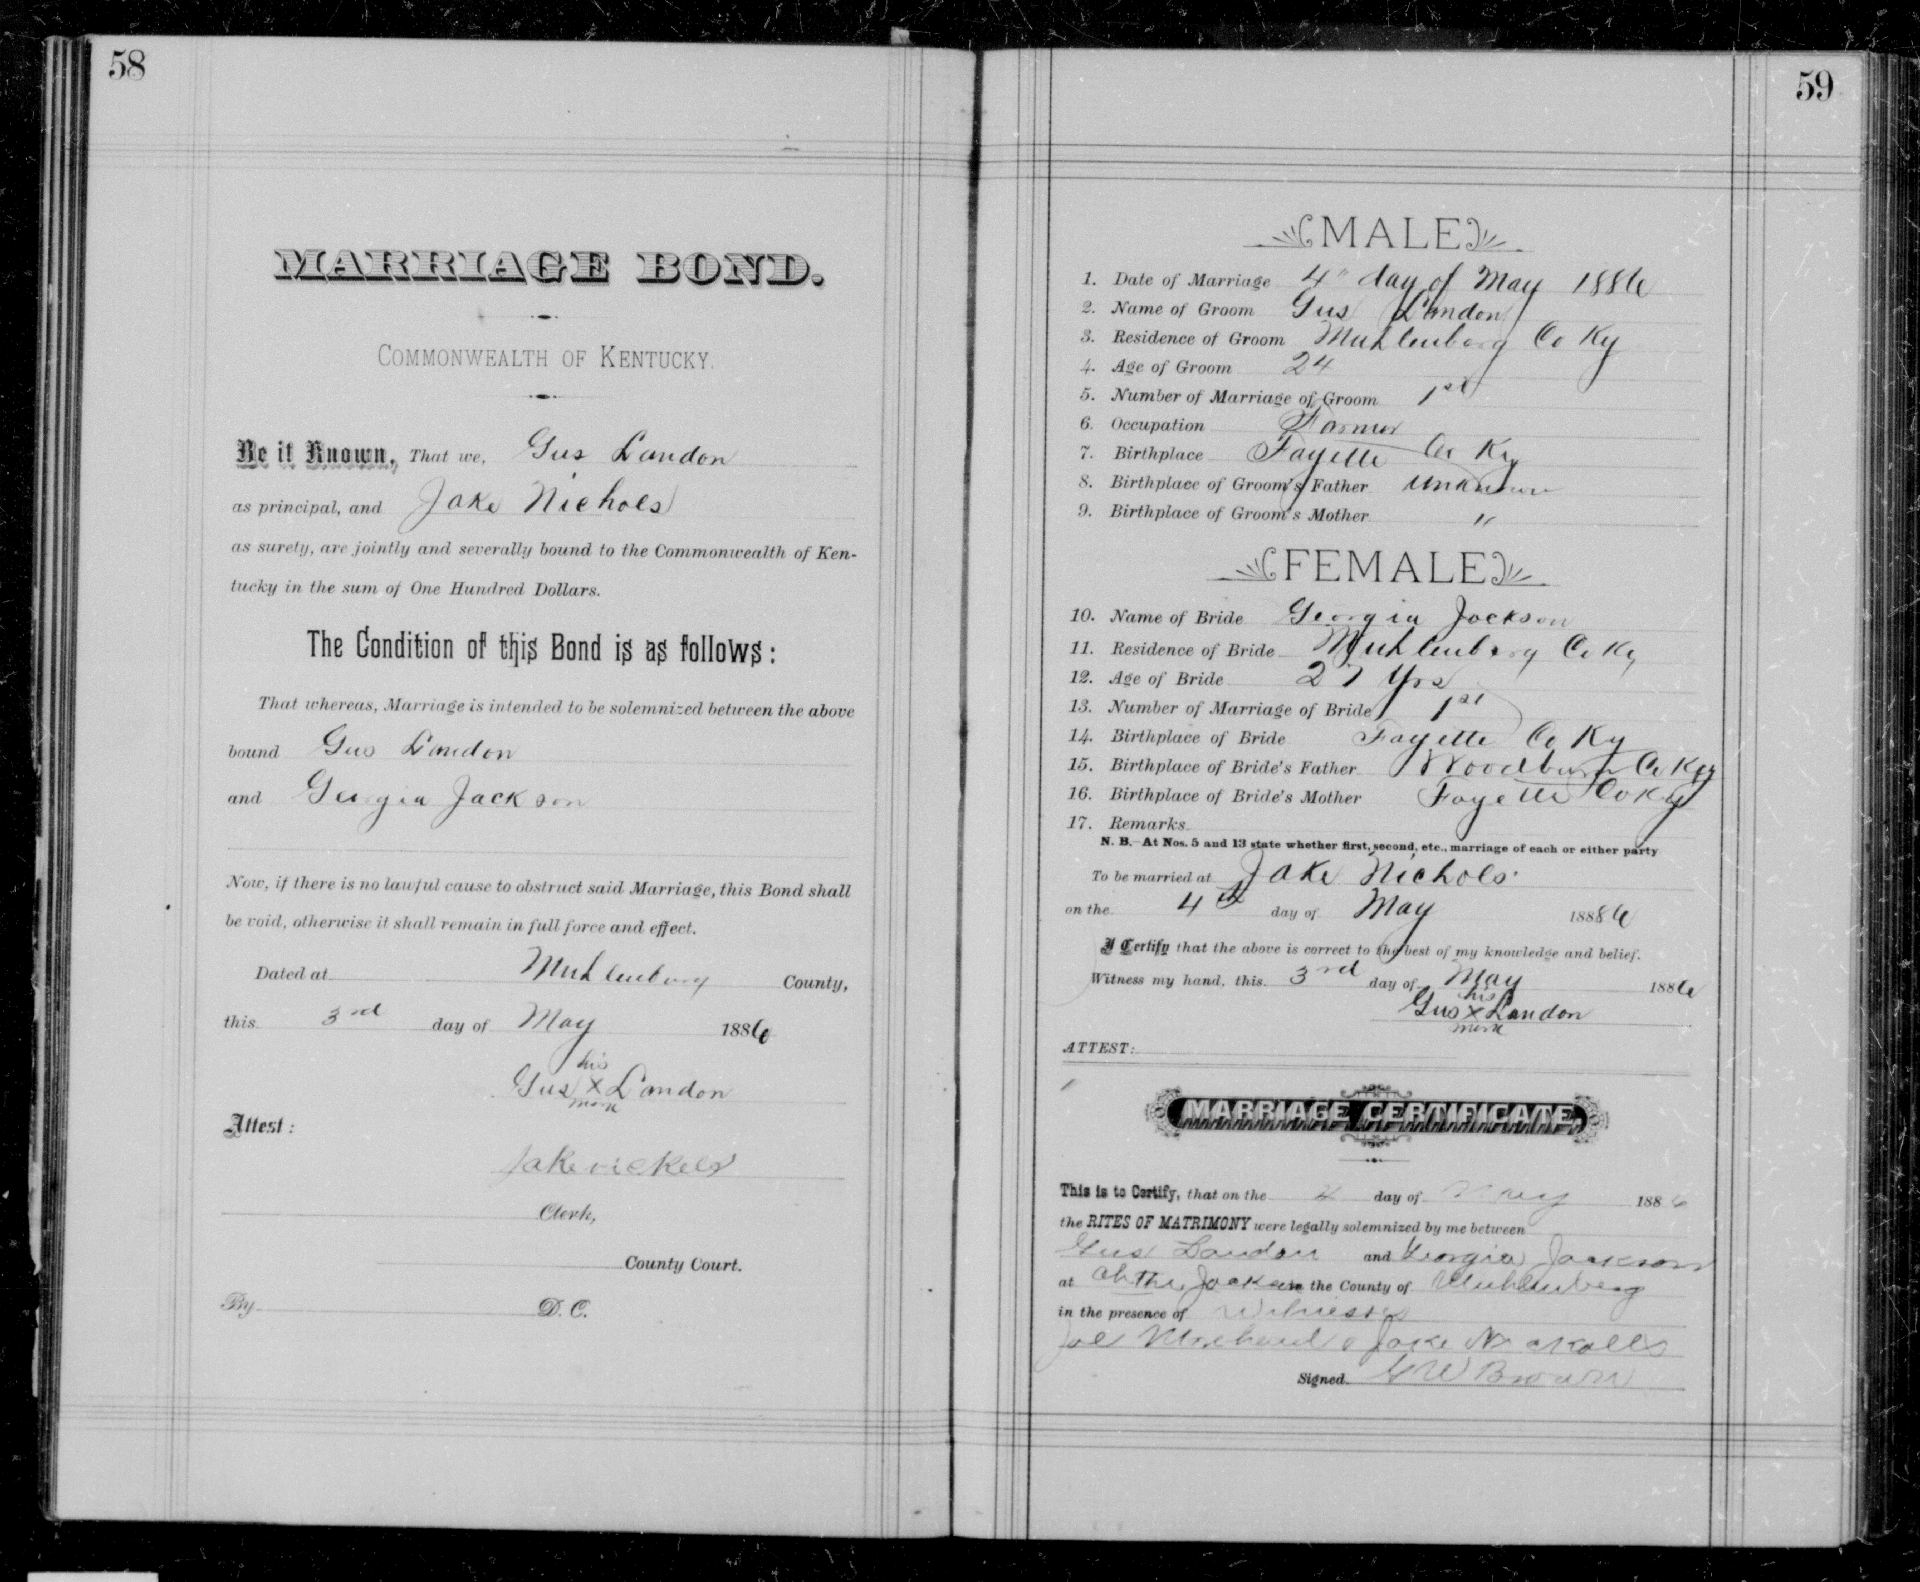 58
MARRIAGE BOND.
COMMONWEALTH OF KENTUCKY.
Be it Known, That we, Gus Landon
as principal, and Jake Nichols
as surety, are jointly and severally bound to the Commonwealth of Ken-
tucky in the sum of One Hundred Dollars.
The Condition of this Bond is as follows:
That whereas, Marriage is intended to be solemnized between the above
bound Gus Landon
and Georgia Jackson
Now, if there is no lawful cause to obstruct said Marriage, this Bond shall
be void, otherwise it shall remain in full force and effect.
Dated at Muhlenburg County,
this 3rd day of May 1886
his
Gus x Landon
mark
Attest:
Jake nickels
Clerk,
County Court.
By D. C.
59
MALE
1. Date of Marriage 4" day of May 1886
2. Name of Groom Gus Landon
3. Residence of Groom Muhlenburg Co Ky
4. Age of Groom 24
5. Number of Marriage of Groom 1st
6. Occupation Farmer
7. Birthplace Fayette Co Ky
8. Birthplace of Groom's Father Unknown
9. Birthplace of Groom's Mother "
FEMALE
10. Name of Bride Georgia Jackson
11. Residence of Bride Muhlenburg Co Ky
12. Age of Bride 27 Yrs
13. Number of Marriage of Bride 1st
14. Birthplace of Bride Fayette Co Ky
15. Birthplace of Bride's Father Co Ky
16. Birthplace of Bride's Mother Fayette Co Ky
17. Remarks
N. B.—At Nos. 5 and 13 state whether first, second, etc., marriage of each or either party
To be married at Jake Nichols
on the 4th day of May 1886
I Certify that the above is correct to the best of my knowledge and belief.
Witness my hand, this 3rd day of May 1886
his
Gus x Landon
mark
ATTEST:
MARRIAGE CERTIFICATE.
This is to Certify, that on the 4 day of May 1886
the RITES OF MATRIMONY were legally solemnized by me between
Gus Landon and Georgia Jackson
at in the County of Muhlenberg
in the presence of Witnesses
Joe Jake
Signed G W Brown